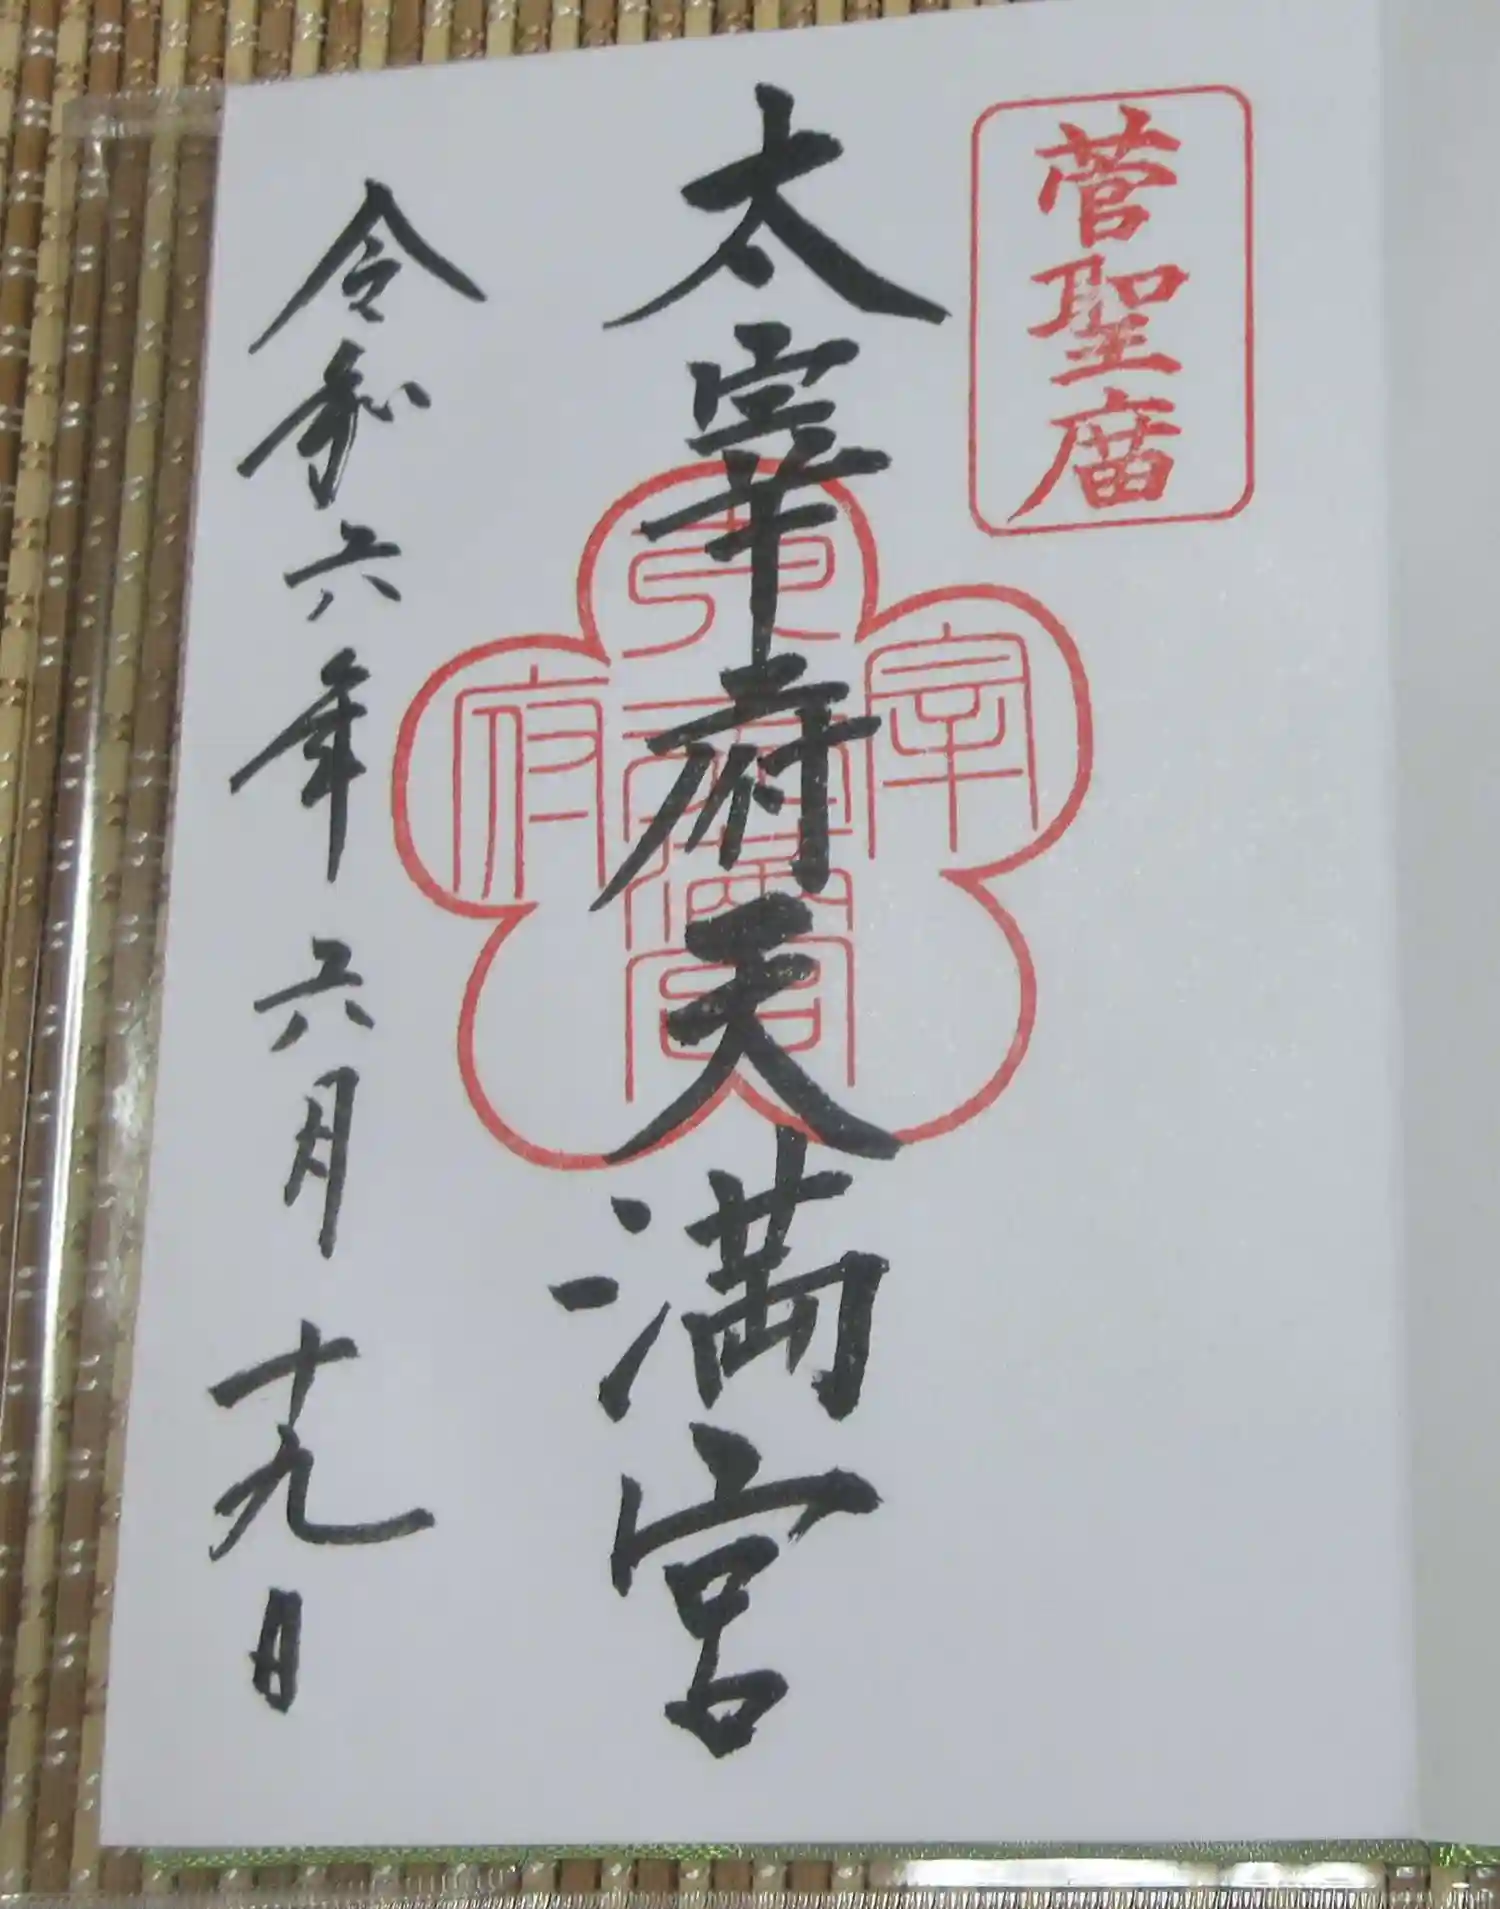 菅聖庿
太宰府天満宮
令和六年六月十九日
太宰府天満宮